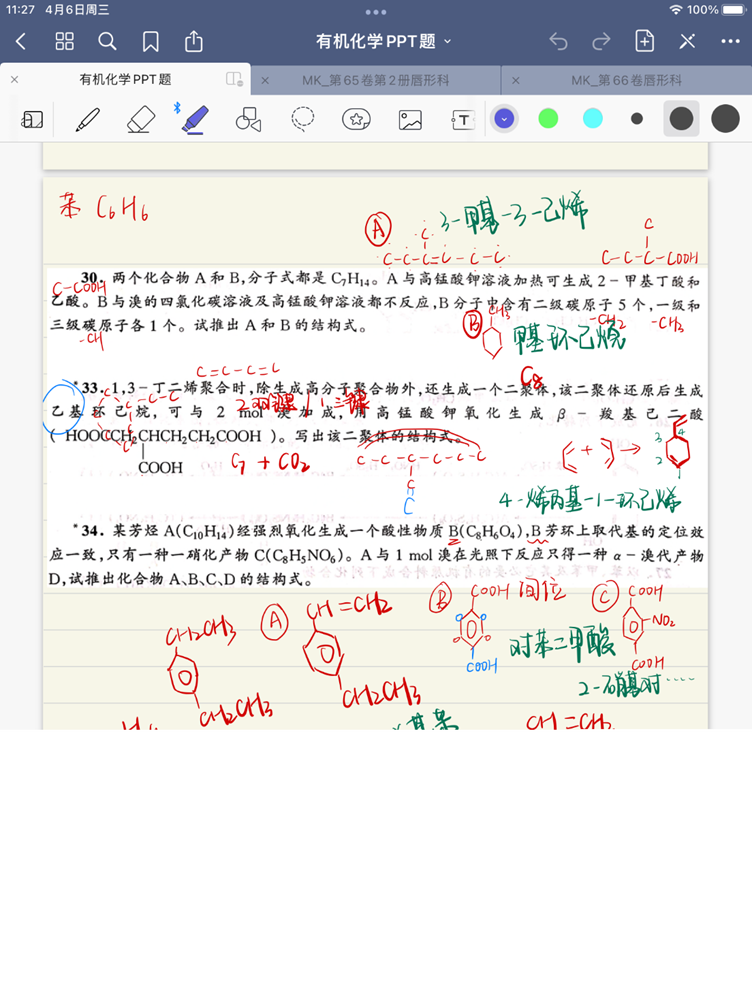 11:27 4月6日周三
100%
有机化学PPT题
有机化学PPT题
MK_第65卷第2册唇形科
MK_第66卷唇形科
苯 C6H6
A
3-甲基-3-己烯
C
C-C-C=C-C-C
C
C-C-C-COOH
30. 两个化合物 A 和 B,分子式都是 C₇H₁₄。A 与高锰酸钾溶液加热可生成 2-甲基丁酸和
C-COOH
乙酸。B 与溴的四氯化碳溶液及高锰酸钾溶液都不反应,B 分子中含有二级碳原子 5 个,一级和
三级碳原子各 1 个。试推出 A 和 B 的结构式。
-CH
B
CH3
甲基环己烷
-CH2
-CH3
C=C-C=C
C8
*33. 1,3-丁二烯聚合时,除生成高分子聚合物外,还生成一个二聚体,该二聚体还原后生成
乙基环己烷,可与 2 mol 溴加成,用高锰酸钾氧化生成 β-羧基己二酸
(HOOCCH₂CHCH₂CH₂COOH)。写出该二聚体的结构式。
COOH
C7 + CO2
C-C-C-C-C-C
C
C
4-烯丙基-1-环己烯
*34. 某芳烃 A(C₁₀H₁₄)经强烈氧化生成一个酸性物质 B(C₈H₆O₄),B 芳环上取代基的定位效
应一致,只有一种一硝化产物 C(C₈H₅NO₆)。A 与 1 mol 溴在光照下反应只得一种 α-溴代产物
D,试推出化合物 A、B、C、D 的结构式。
CH2CH3
CH2CH3
A
CH=CH2
CH2CH3
B
COOH 间位
COOH
对苯二甲酸
C
COOH
-NO2
COOH
2-硝基对····
CH=CH2